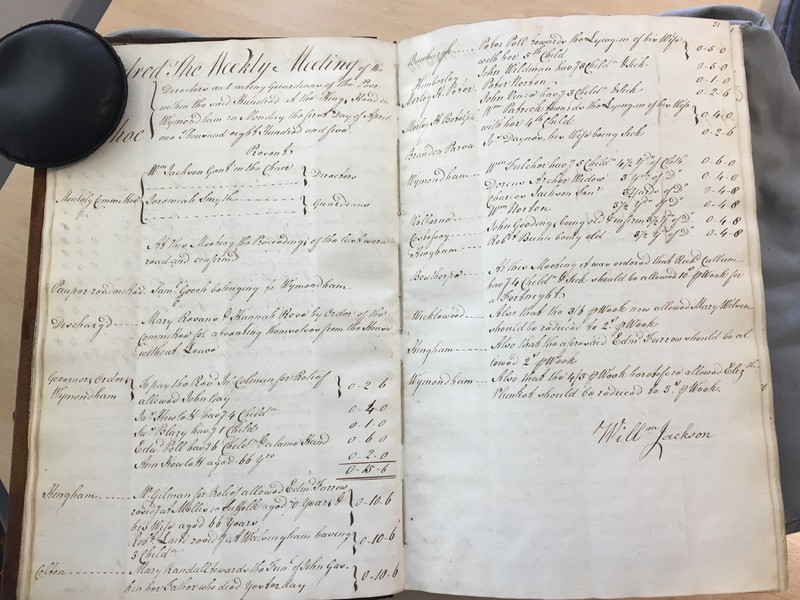 dred The Weekly Meeting of the
Directors and acting Guardians of the Poor
within the said Hundred at the Kings Head in
hoe Wymondham on Monday the first Day of April
one Thousand eight Hundred and five.
Present
Wm Jackson Gent in the Chair } Directors
Monthly Committee Jeremiah Smyth } Guardians
At this Meeting the Proceedings of the last were
read and confirmed
Pauper readmitted Saml Gooch belonging to Wymondham
Discharg'd Mary Rovans & Hannah Rose by Order of the
Committee for absenting themselves from the House
without Leave
Governors Orders To pay the Rev'd Mr Colman for Relief
Wymondham allowed John Day 0-2-6
Jas Howlett hav'g 4 Childn 0-4-0
Jas Blazy hav'g 1 Child 0-1-0
Edwd Poll hav'g 6 Childn & a lame Hand 0-6-0
Ann Howlett aged 66 Yrs 0-2-0
0-15-6
Hingham Mr Gilman for Relief allowed Edmd Farrow
resid'g at Mellis in Suffolk aged 70 Years, &
his Wife aged 66 Years 0-10-6
Robt Lark resid'g at Walsingham having
3 Childn 0-10-6
Colton Mary Randall towards the Funl of John
her Father who died Yesterday 0-10-6
31
Bawburgh Peter Poll towards the Lying-in of his Wife
with her 5th Child 0-5-0
Kimberley John Wildman hav'g 8 Childn & Sick 0-5-0
Morley St Peter Peter Norton 0-1-0
John Pears hav'g 5 Childn & Sick 0-2-6
Morley St Botolph Wm Patrick towards the Lying-in of his Wife
with her 4th Child 0-4-0
Brandon Parva Jas Daynes, his Wife being Sick 0-2-6
Wymondham Wm Fulcher hav'g 5 Childn 4½ Yds of Cloth 0-6-0
Dorcas Archer Widow 3 Yds of do 0-4-0
Charles Jackson Senr 3½ Yards of do 0-4-8
Wm Norton 3½ Yds of do 0-4-8
Welborne John Gooding being old & infirm 3½ Yds of do 0-4-8
Costessey Robt Bunn being old 3½ Yds of do 0-4-8
Hingham
Besthorpe At this Meeting it was ordered that Richd Cullum
hav'g 4 Childn & Sick should be allowed 10s p Week for
a Fortnight
Wicklewood Also that the 3/6 p Week now allowed Mary
should be reduced to 2s p Week
Hingham Also that the aforesaid Edmd Farrow should be al-
lowed 2s p Week
Wymondham Also that the 4/3 p Week heretofore allowed Elizth
Plunket should be reduced to 3s p Week.
Willm Jackson